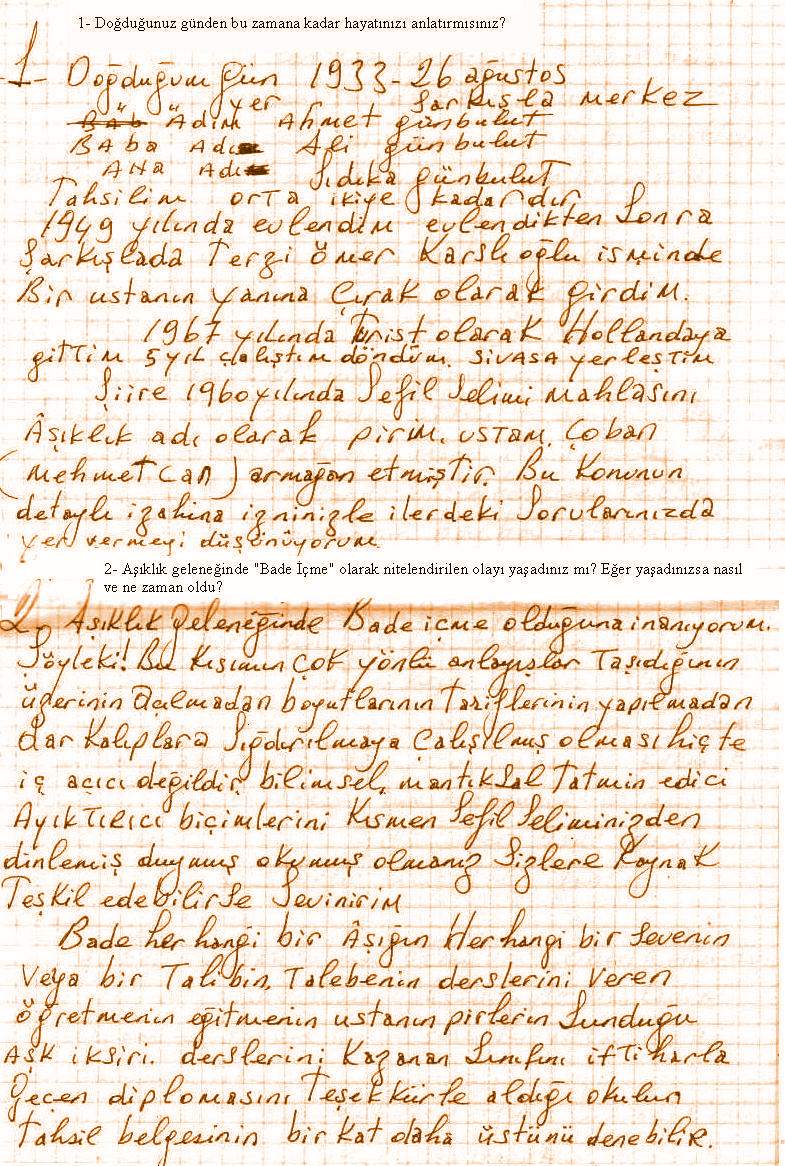 1- Doğduğunuz günden bu zamana kadar hayatınızı anlatırmısınız?
1- Doğduğum gün 1933-26 ağustos
yer Şarkışla merkez
Adım Ahmet günbulut
BAba Adı Ali günbulut
ANA Adı Sıdıka günbulut
Tahsilim orta ikiye kadardır
1949 yılında evlendim evlendikten Sonra
Şarkışlada Terzi ömer Karslıoğlu isminde
Bir ustanın yanına Çırak olarak girdim.
1967 yılında Turist olarak Hollandaya
gittim 5 yıl çalıştım döndüm. SİVASA yerleştim
Şiire 1960 yılında Sefil Selimi mahlasını
Âşıklık adı olarak pirim, ustam, Çoban
(Mehmet Can) armağan etmiştir. Bu Konunun
detaylı izahına izninizle ilerdeki Sorularınızda
yer vermeyi düşünüyorum
2- Aşıklık geleneğinde "Bade İçme" olarak nitelendirilen olayı yaşadınız mı? Eğer yaşadınızsa nasıl
ve ne zaman oldu?
2- Aşıklık geleneğinde Bade içme olduğuna inanıyorum.
Şöyleki! Bu Kısımın çok yönlü anlayışlar Taşıdığının
üzerinin Açılmadan boyutlarının tariflerinin yapılmadan
dar Kalıplara Sığdırılmaya Çalışılmış olması hiç te
iç açıcı değildir, bilimsel, mantıkSal Tatmin edici
AyıkTırıcı biçimlerini Kısmen Sefil Seliminizden
dinlemiş duymuş okumuş olmanız Sizlere Kaynak
Teşkil edebilirse Sevinirim
Bade her hangi bir Âşığın Her hangi bir Sevenin
Veya bir Talibin, Talebenin derslerini veren
öğretmenin eğitmenin ustanın pirlerin Sunduğu
Aşk iksiri. derslerini Kazanan Sınıfını iftiharla
geçen diplomasını Teşekkürle aldığı okulun
tahsil belgesinin bir kat daha üstünü denebilir.